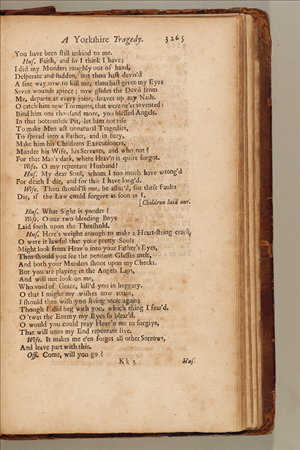 A Yorkshire Tragedy. 3265
You have been still unkind to me.
Hus. Faith, and so I think I have;
I did my Murders roughly out of hand,
Desperate and sudden, but thou hast devis'd
A fine way now to kill me, thou hast given my Eyes
Seven wounds apiece; now glides the Devil from
Me, departs at every joint, heaves up my Nails.
O catch him new Torments, that were ne'er invented!
Bind him one thousand more, you blessed Angels,
In that bottomless Pit, let him not rise
To make Men act unnatural Tragedies,
To spread into a Father, and in fury,
Make him his Childrens Executioners,
Murder his Wife, his Servants, and who not?
For that Man's dark, where Heav'n is quite forgot.
Wife. O my repentant Husband!
Hus. My dear Soul, whom I too much have wrong'd
For death I die, and for this I have long'd.
Wife. Thou should'st not, be assur'd, for these Faults
Die, if the Law could forgive as soon as I,
[Children laid out.
Hus. What Sight is yonder?
Wife. O our two bleeding Boys
Laid forth upon the Threshold.
Hus. Here's weight enough to make a Heart-string crack,
O were it lawful that your pretty Souls
Might look from Heav'n into your Father's Eyes,
Then should you see the penitent Glasses melt,
And both your Murders shoot upon my Cheeks.
But you are playing in the Angels Laps,
And will not look on me,
Who void of Grace, kill'd you in beggary.
O that I might my wishes now attain,
I should then wish you living were again;
Though I did beg with you, which thing I fear'd,
O 'twas the Enemy my Eyes so blear'd.
O would you could pray Heav'n me to forgive,
That will unto my End repentant live.
Wife. It makes me e'en forget all other Sorrows,
And leave part with this.
Offi. Come, will you go?
Kk 5 Hus.